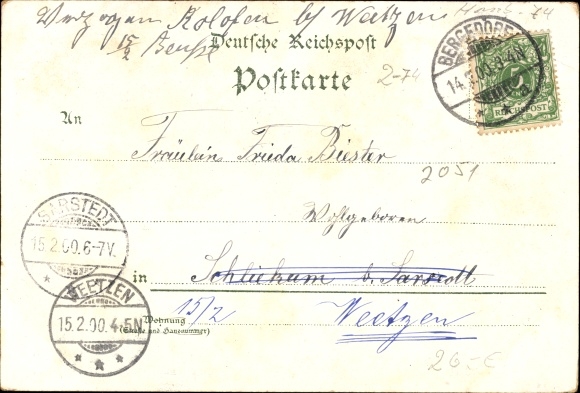 Verzogen Kolofen b/ Weetzen
15/2
Deutsche Reichspost
Postkarte
2-74
BERGEDORF
14.2.00.3-4N.
a
REICHSPOST
An
Fräulein Frieda Biester
2051
Wohlgeboren
SARSTEDT
15.2.00.6-7V.
in Schliekum b. Sarstedt
WEETZEN
15.2.00.4-5N
15/2 Weetzen
Wohnung
(Straße und Hausnummer)
20.-€